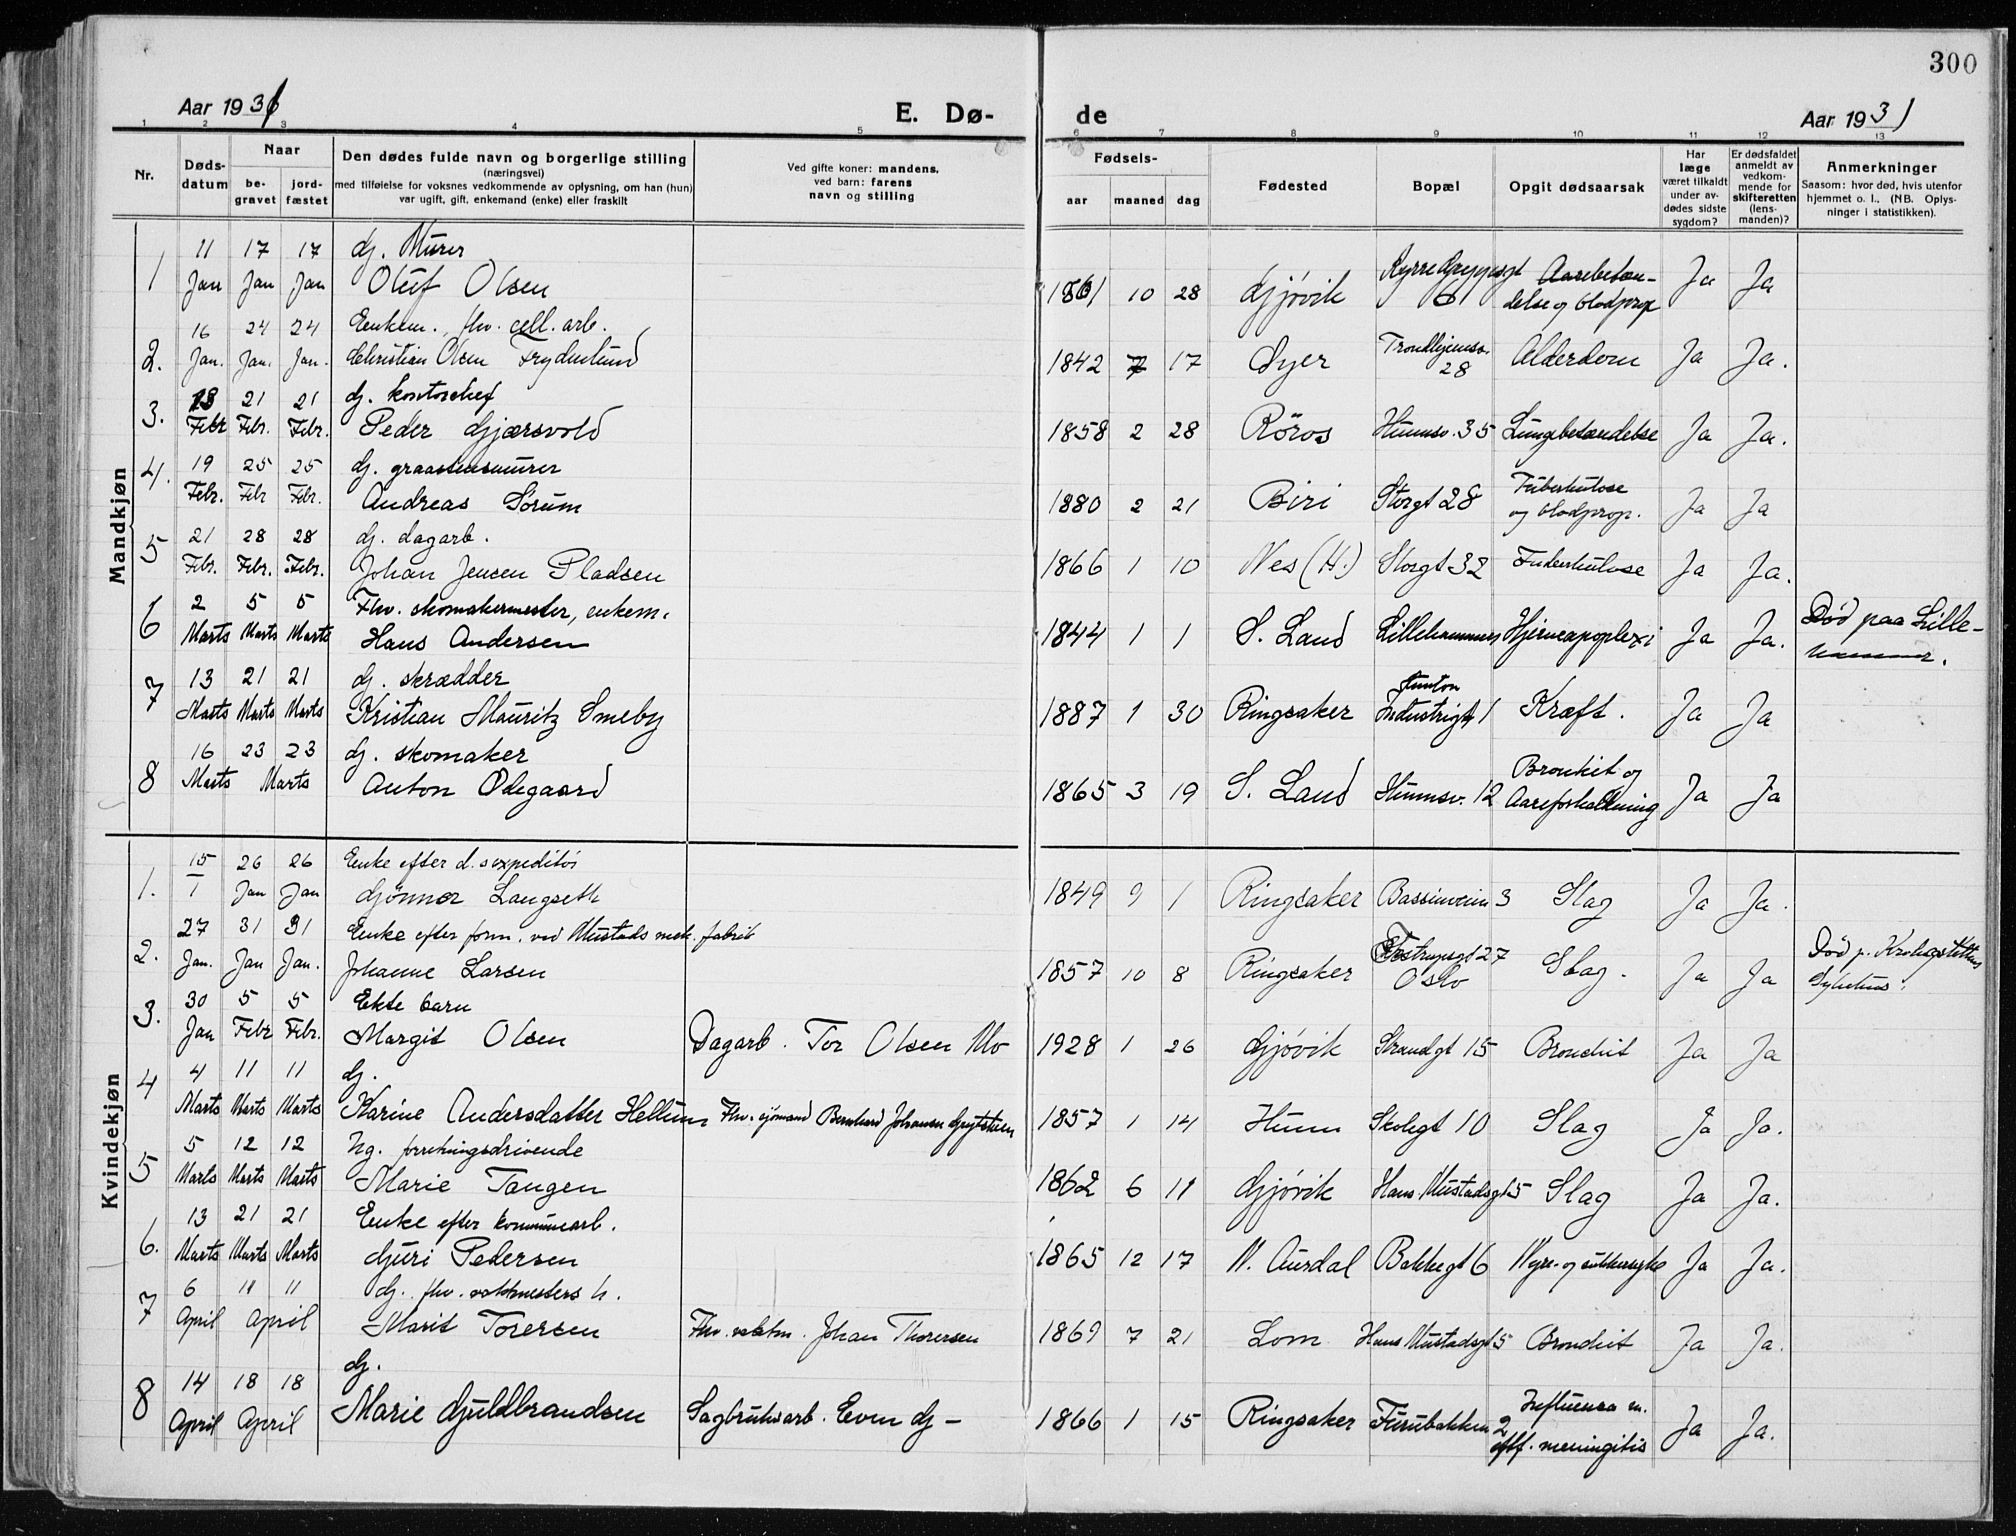 300
Aar 1931
E. Dø-
de
Aar 1931
1 2 3 4 5 6 7 8 9 10 11 12 13
Nr.
Døds-
datum
Naar
be-
gravet
jord-
fæstet
Den dødes fulde navn og borgerlige stilling
(næringsvei)
med tilføielse for voksnes vedkommende av oplysning, om han (hun)
var ugift, gift, enkemand (enke) eller fraskilt
Ved gifte koner: mandens,
ved barn: farens
navn og stilling
Fødsels-
aar maaned dag
Fødested
Bopæl
Opgit dødsaarsak
Har
læge
været tilkaldt
under av-
dødes sidste
sygdom?
Er dødsfaldet
anmeldt av
vedkom-
mende for
skifteretten
(lens-
manden)?
Anmerkninger
Saasom: hvor død, hvis utenfor
hjemmet o. l., (NB. Oplys-
ninger i statistikken).
Mandkjøn
11 17 17 Gj. Murer
1 Jan Jan Jan Oluf Olsen 1861 10 28 Gjøvik 6 Aarebeten-
delse og blodprop Ja Ja
16 24 24 Enkem., fhv. cell. arb.
2. Jan. Jan. Jan. Christian Olsen Frydenlund 1842 7 17 Øyer Trondhjemsv.
28 Alderdom Ja Ja.
18 21 21 Gj. kontorchef
3. Febr. Febr. Febr. Peder Gjærsvold 1858 2 28 Röros Hunnsv. 35 Lungebetændelse Ja Ja.
19 25 25 Gj. graastensmurer
4. Febr. Febr Febr. Andreas Sörum 1880 2 21 Biri Storgt 28 Tuberkulose
og blodprop. Ja Ja
21 28 28 Gj. dagarb.
5 Febr. Febr. Febr. Johan Jensen Pladsen 1866 1 10 Nes (H.) Storgt 32 Tuberkulose Ja Ja.
2 5 5 Fhv. skomakermester, enkem.
6 Marts Marts Marts Hans Andersen 1844 1 1 S. Land Lillehammer Hjerneapoplexi Ja Ja. Död paa Lille-
hammer.
13 21 21 Gj. skrædder
7 Marts Marts Marts Kristian Mauritz Smeby 1887 1 30 Ringsaker Industrigt 1 Kræft. Ja Ja
16 23 23 Gj. skomaker
8 Marts Marts Anton Ødegaard 1865 3 19 S. Land Hunnsv. 12 Bronkit og
Aareforkalkning Ja Ja
Kvindekjøn
15 26 26 Enke efter d.sexpeditør
1. 1 Jan Jan Gjönnor Langseth 1849 9 1 Ringsaker Bassinveien 3 Slag Ja Ja.
27 31 31 Enke efter form. ved Mustads mek. fabrik
2. Jan. Jan Jan. Johanne Larsen 1857 10 8 Ringsaker 27
Oslo Slag. Ja Ja Död p. Krohgstöttens
Sykehus.
30 5 5 Ekte barn
3. Jan Febr Febr. Margit Olsen Dagarb. Tor Olsen Mo 1928 1 26 Gjøvik Strandgt 15 Bronchit Ja Ja
4 11 11 Gj.
4 Marts Marts Marts Karine Andersdatter Hellum Fhv. sjømand Bernhard Johansen 1857 1 14 Hunn Skolegt 10 Slag Ja Ja.
5 12 12 Ug. forretningsdrivende
5 Marts Marts Marts Marie Tangen 1862 6 11 Gjøvik Hans Mustadsgt 5 Slag Ja Ja.
13 21 21 Enke efter kommunearb.
6. Marts Marts Marts Guri Pedersen 1865 12 17 N. Aurdal Bakkegt 6 Nyre- og sukkersyke Ja Ja.
6 11 11 Gj. fhv. vaktmesters h.
7 April April Marit Torersen Fhv. vaktm. Johan Thorersen 1869 7 21 Lom Hans Mustadsgt 5 Bronchit Ja Ja.
Gj.
14 18 18
8 April April Marie Guldbrandsen Sagbruksarb. Even G- 1866 1 15 Ringsaker Furubakken 2 Influensa m.
eftf. meningitis Ja Ja.